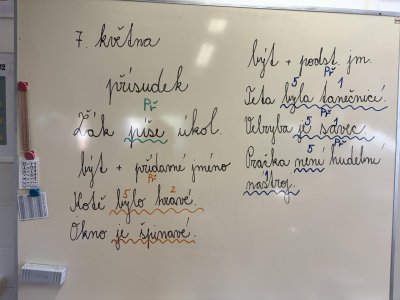 7. května
přísudek
Př
Žák píše úkol.
být + přídavné jméno
Př
5 2
Kotě bylo hravé.
Okno je špinavé.
být + podst. jm.
Př
5 1
Teta byla tanečnicí.
Př
5 1
Velryba je savec.
Př
5
Pračka není hudební
1
nástroj.